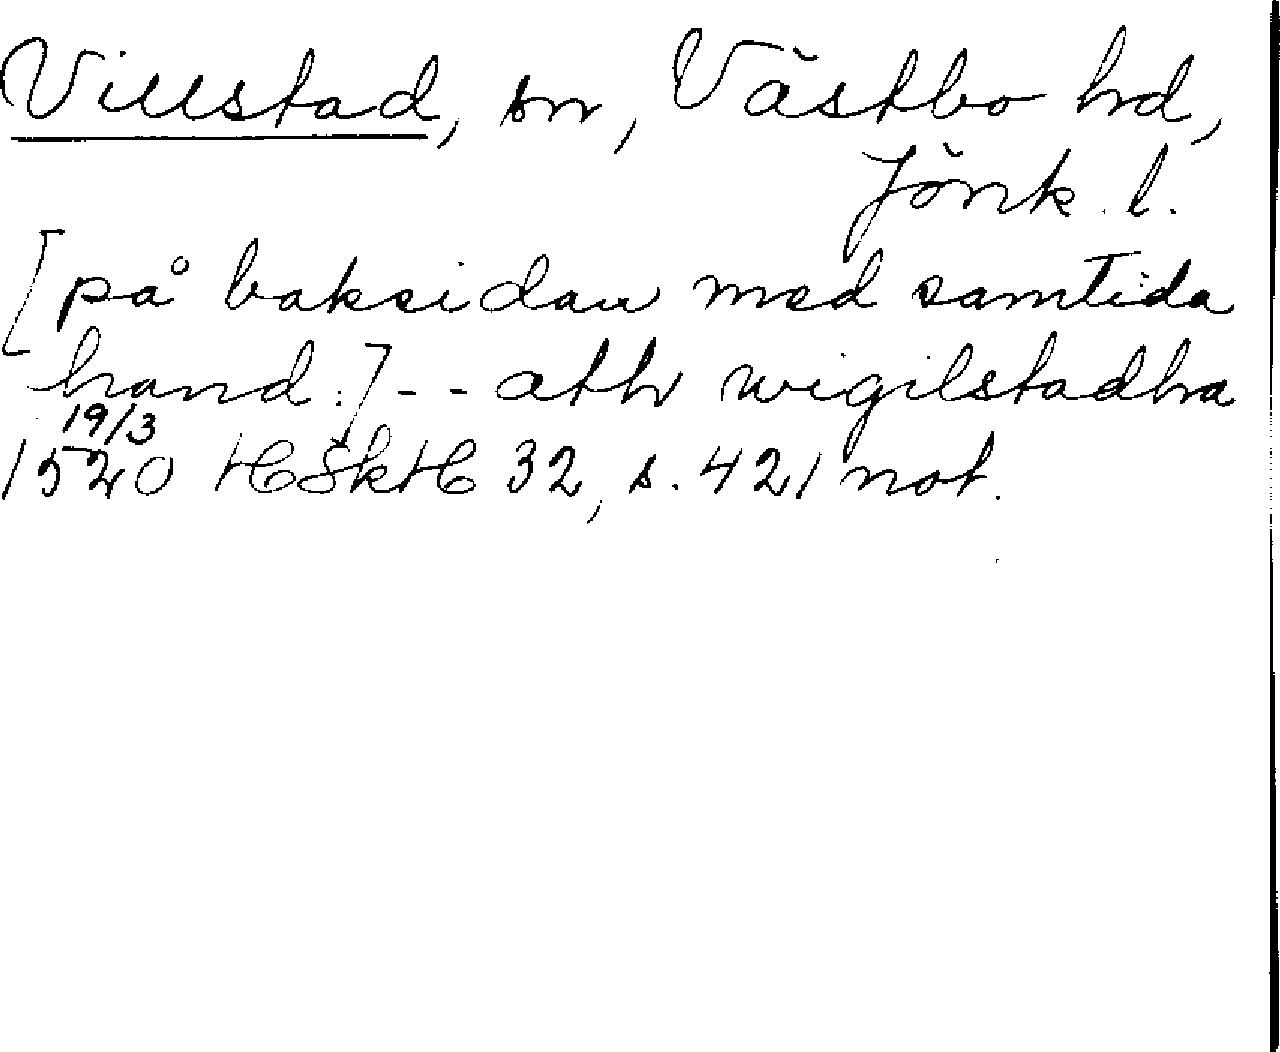 Villstad, sn, Västbo hd,
Jönk. l.
[på baksidan med samtida
hand:] - - ath wigilstadha
19/3
1520 HSkH 32, s. 421 not.